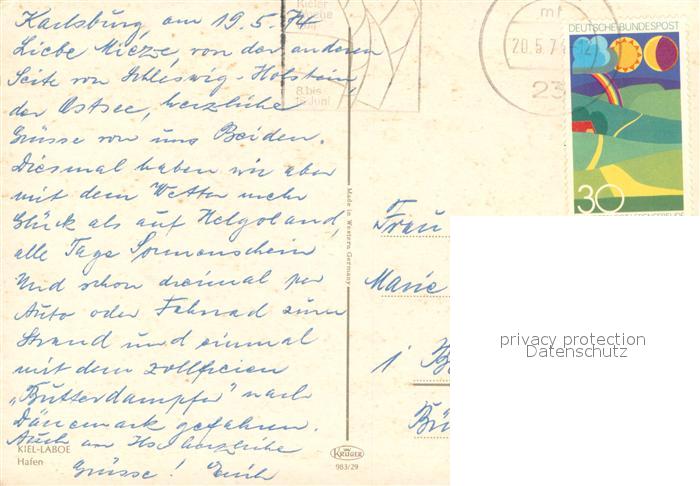 Karlsburg am 19.5.74
Liebe Mieze, von der anderen
Seite von Schleswig-Holstein,
der Ostsee, herzliche
Grüsse von uns Beiden.
Diesmal haben wir aber
mit dem Wetter mehr
Glück als auf Helgoland,
alle Tage Sonnenschein
Und schon dreimal per
Auto oder Fahrrad zum
Strand und einmal
mit dem zollfreien
„Butterdampfer" nach
Dänemark gefahren.
Auch an Hs. herzliche
Grüsse! Erich
KIEL-LABOE
Hafen
Made in Western Germany
KRÜGER
983/29
Kieler
8. bis
16. Juni
mt
20.5.74
23
DEUTSCHE BUNDESPOST
30
Frau
Marie
privacy protection
Datenschutz